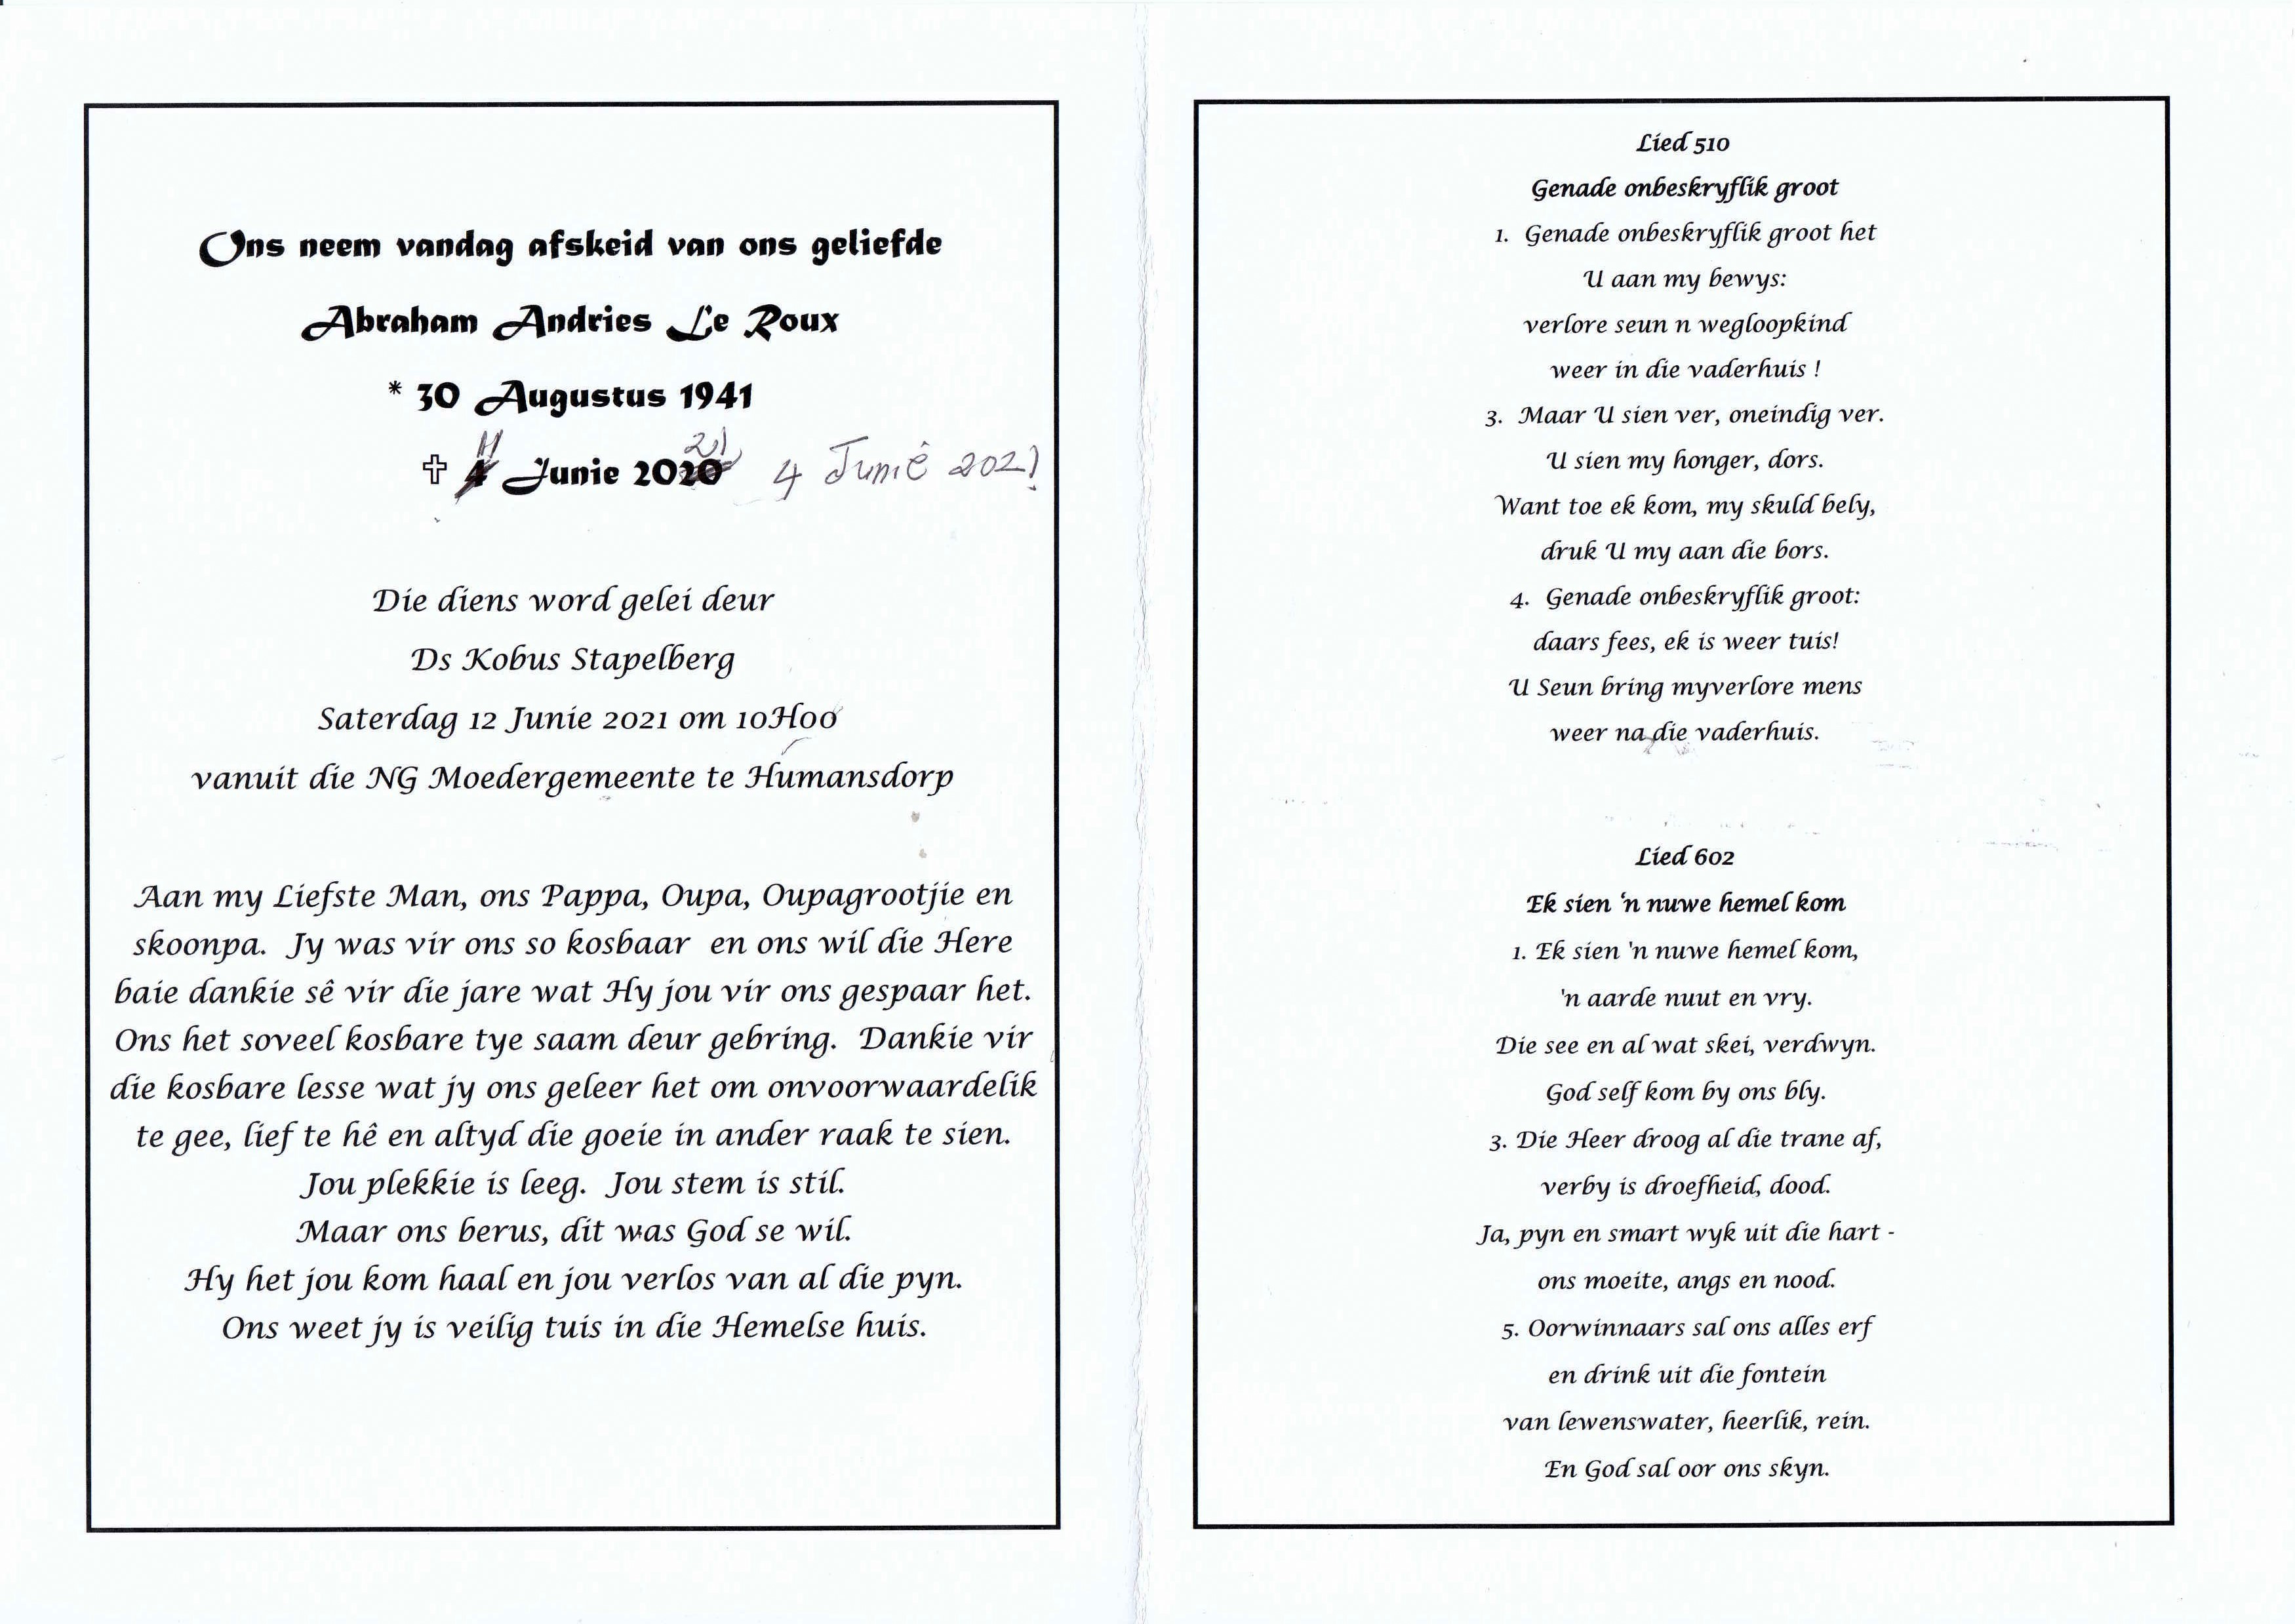 Ons neem vandag afskeid van ons geliefde
Abraham Andries Le Roux
* 30 Augustus 1941
✝ 4 Junie 2020 21 4 Junie 2021
Die diens word gelei deur
Ds Kobus Stapelberg
Saterdag 12 Junie 2021 om 10H00
vanuit die NG Moedergemeente te Humansdorp
Aan my Liefste Man, ons Pappa, Oupa, Oupagrootjie en
skoonpa. Jy was vir ons so kosbaar en ons wil die Here
baie dankie sê vir die jare wat Hy jou vir ons gespaar het.
Ons het soveel kosbare tye saam deur gebring. Dankie vir
die kosbare lesse wat jy ons geleer het om onvoorwaardelik
te gee, lief te hê en altyd die goeie in ander raak te sien.
Jou plekkie is leeg. Jou stem is stil.
Maar ons berus, dit was God se wil.
Hy het jou kom haal en jou verlos van al die pyn.
Ons weet jy is veilig tuis in die Hemelse huis.
Lied 510
Genade onbeskryflik groot
1. Genade onbeskryflik groot het
U aan my bewys:
verlore seun n wegloopkind
weer in die vaderhuis !
3. Maar U sien ver, oneindig ver.
U sien my honger, dors.
Want toe ek kom, my skuld bely,
druk U my aan die bors.
4. Genade onbeskryflik groot:
daars fees, ek is weer tuis!
U Seun bring myverlore mens
weer na die vaderhuis.
Lied 602
Ek sien 'n nuwe hemel kom
1. Ek sien 'n nuwe hemel kom,
'n aarde nuut en vry.
Die see en al wat skei, verdwyn.
God self kom by ons bly.
3. Die Heer droog al die trane af,
verby is droefheid, dood.
Ja, pyn en smart wyk uit die hart -
ons moeite, angs en nood.
5. Oorwinnaars sal ons alles erf
en drink uit die fontein
van lewenswater, heerlik, rein.
En God sal oor ons skyn.